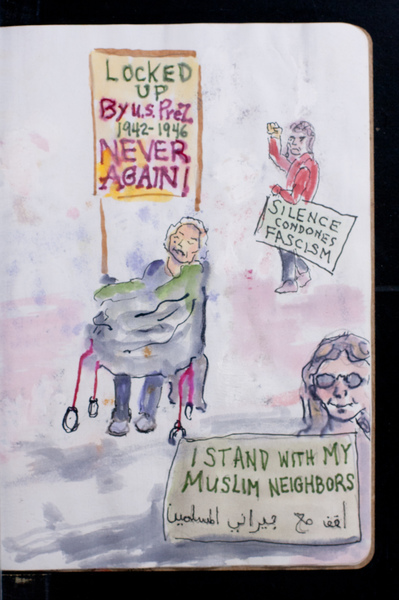 LOCKED
UP
By U.S. PreZ.
1942-1946
NEVER
AGAIN!
SILENCE
CONDONES
FASCISM
I STAND WITH MY
MUSLIM NEIGHBORS
أقف مع جيراني المسلمين